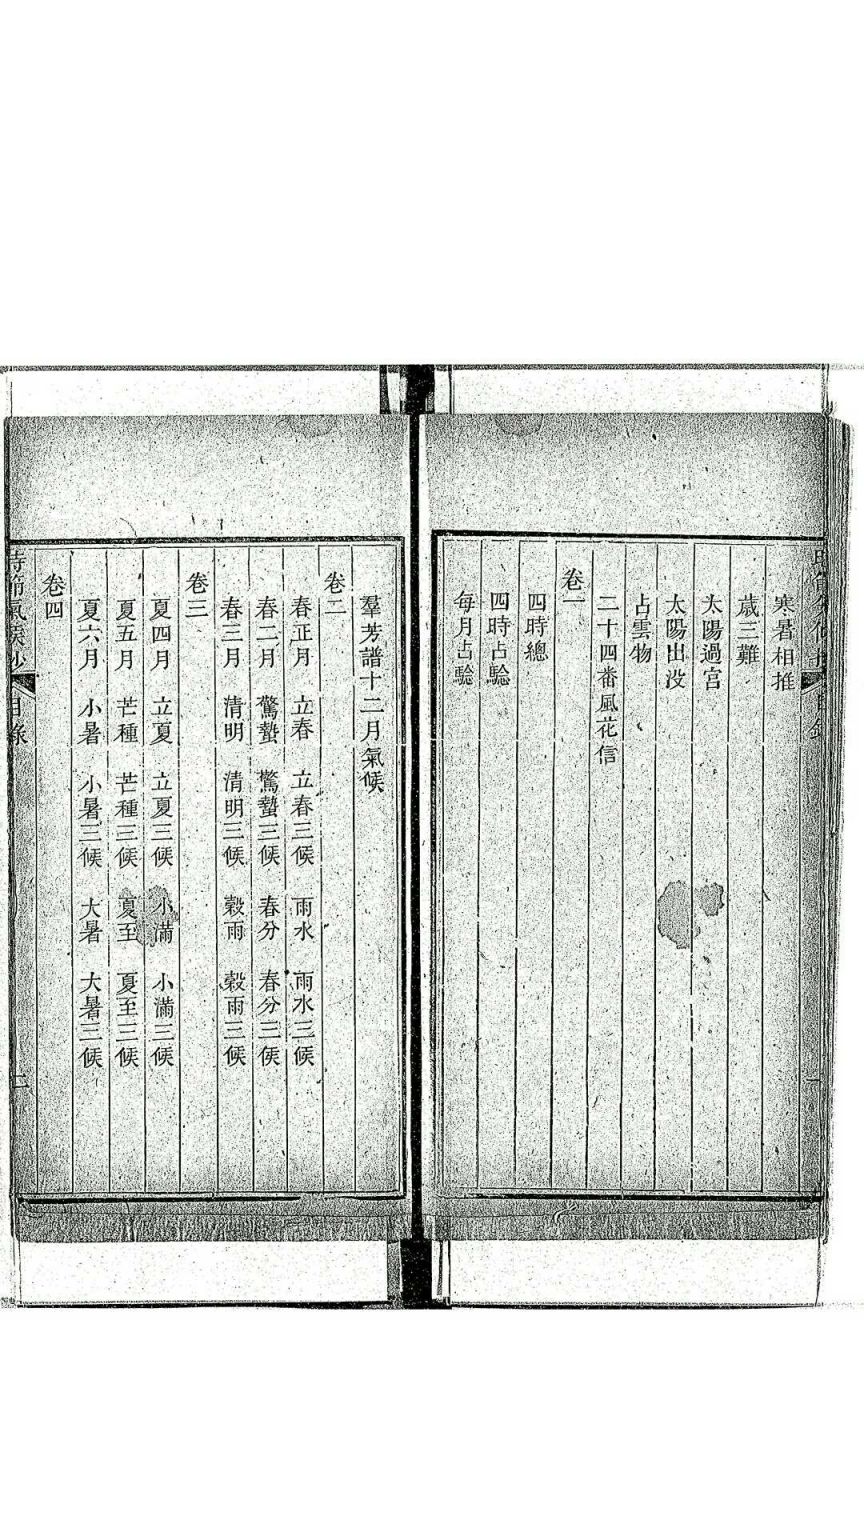 寒暑相推
歲三難
太陽過宮
太陽出没
占雲物
二十四番風花信
卷一
四時總
四時占驗
每月占驗
羣芳譜十二月氣候
卷二
春正月 立春 立春三候 雨水 雨水三候
春二月 驚蟄 驚蟄三候 春分 春分三候
春三月 清明 清明三候 穀雨 穀雨三候
卷三
夏四月 立夏 立夏三候 小滿 小滿三候
夏五月 芒種 芒種三候 夏至 夏至三候
夏六月 小暑 小暑三候 大暑 大暑三候
卷四
時節氣候抄 目録 二